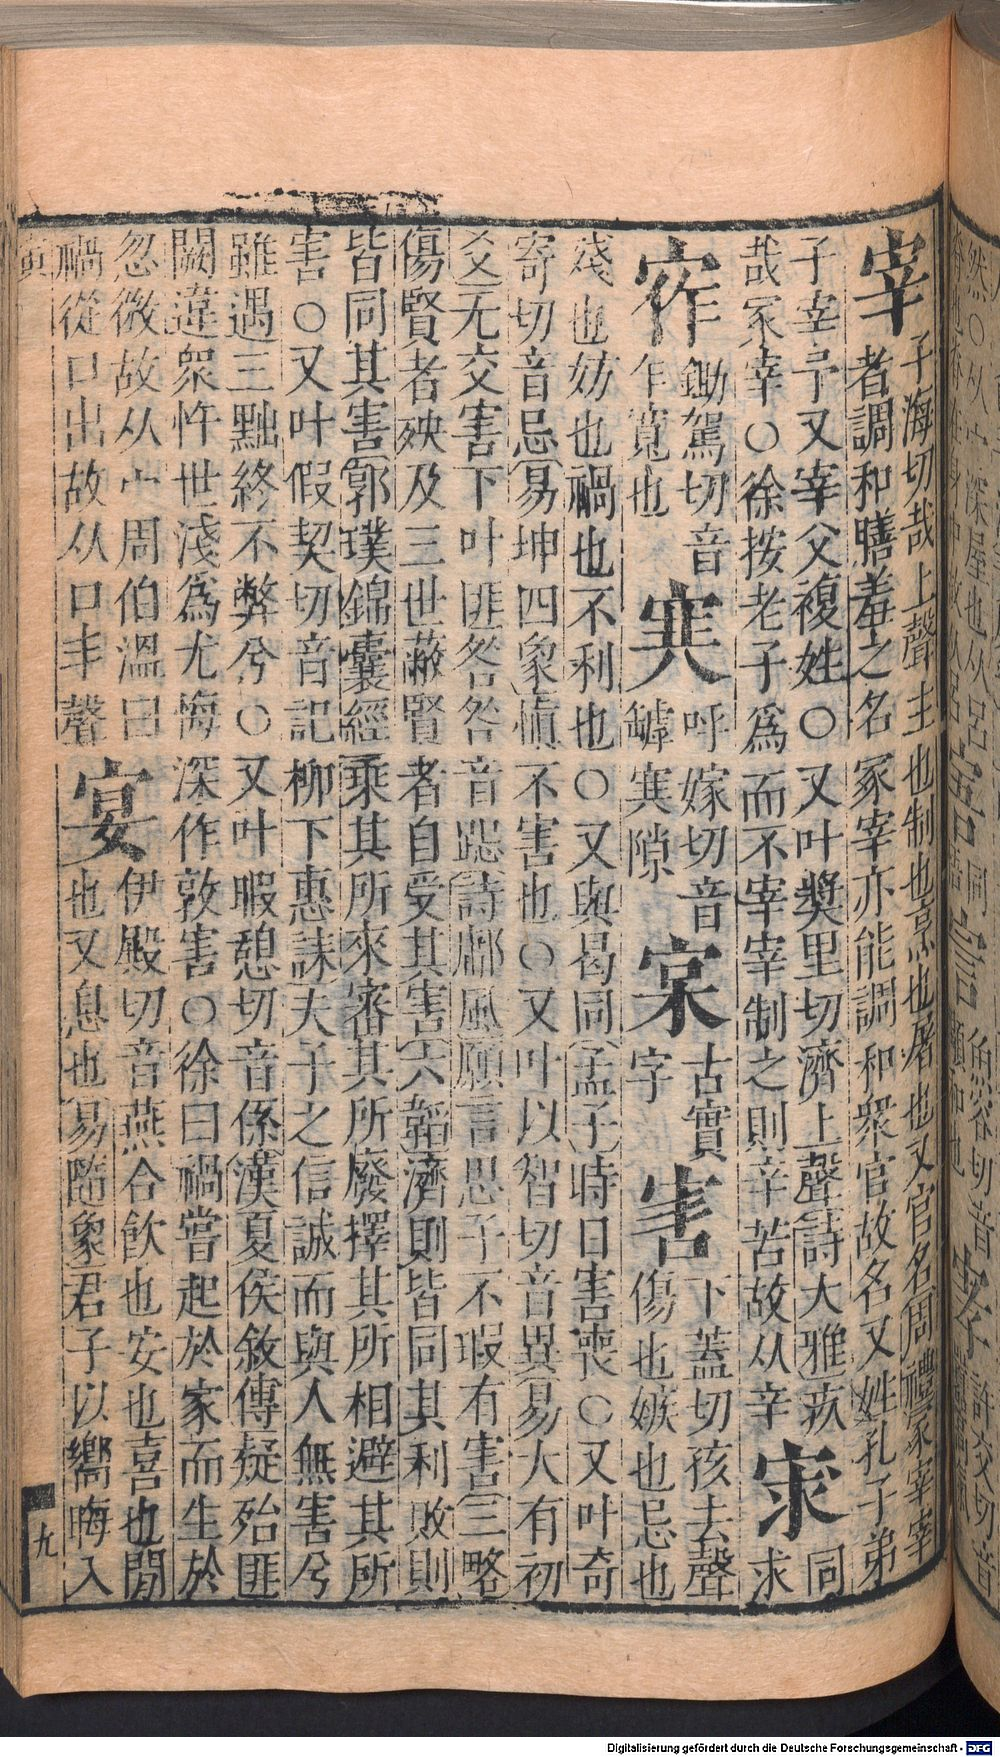 宰子海切哉上聲主也制也烹也屠也又官名周禮冢宰宰
者調和膳羞之名冢宰亦能調和衆官故名又姓孔子弟
子宰予又宰父複姓○又叶獎里切濟上聲詩大雅疚
哉冢宰○徐按老子爲而不宰宰制之則辛苦故从辛
㝌同
求
㡸鋤駕切音
乍寬也
㝧呼嫁切音
罅㝧隙
㝎古實
字
害下蓋切孩去聲
傷也嫉也忌也
殘也妨也禍也不利也○又與曷同孟子時日害喪○又叶奇
寄切音忌易坤四象愼不害也○又叶以智切音異易大有初
爻无交害下叶匪咎咎音跽詩邶風願言思子不瑕有害三略
傷賢者殃及三世蔽賢者自受其害六韜濟則皆同其利敗則
皆同其害郭璞錦囊經乘其所來審其所廢擇其所相避其所
害○又叶假契切音記柳下惠誄夫子之信誠而與人無害兮
雖遇三黜終不弊兮○又叶暇憩切音係漢夏侯敘傳疑殆匪
闕違衆忤世淺爲尤悔深作敦害○徐曰禍嘗起於家而生於
忽微故从宀周伯溫曰
禍從口出故从口丯聲
宴伊殿切音燕合飮也安也喜也閒
也又息也易隨象君子以嚮晦入
九